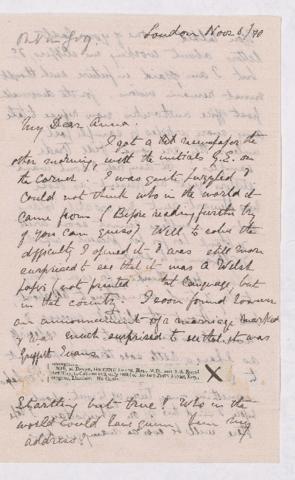 London Nov 6/70
My Dear Anna
I got a newspaper the
other morning, with the initials G.E. on
the corner. I was quite puzzled &
could not think who in the world it
came from (Before reading further try
if you can guess) Well to solve the
difficulty I opened it & was still more
surprised to see that it was a Welsh
paper (not printed language, but
in that country. I soon found
an announcement of a marriage marked
& was much surprised to see that it was
Griffith Evans
X
Startling but true! Who in the
world could have given him my
address?